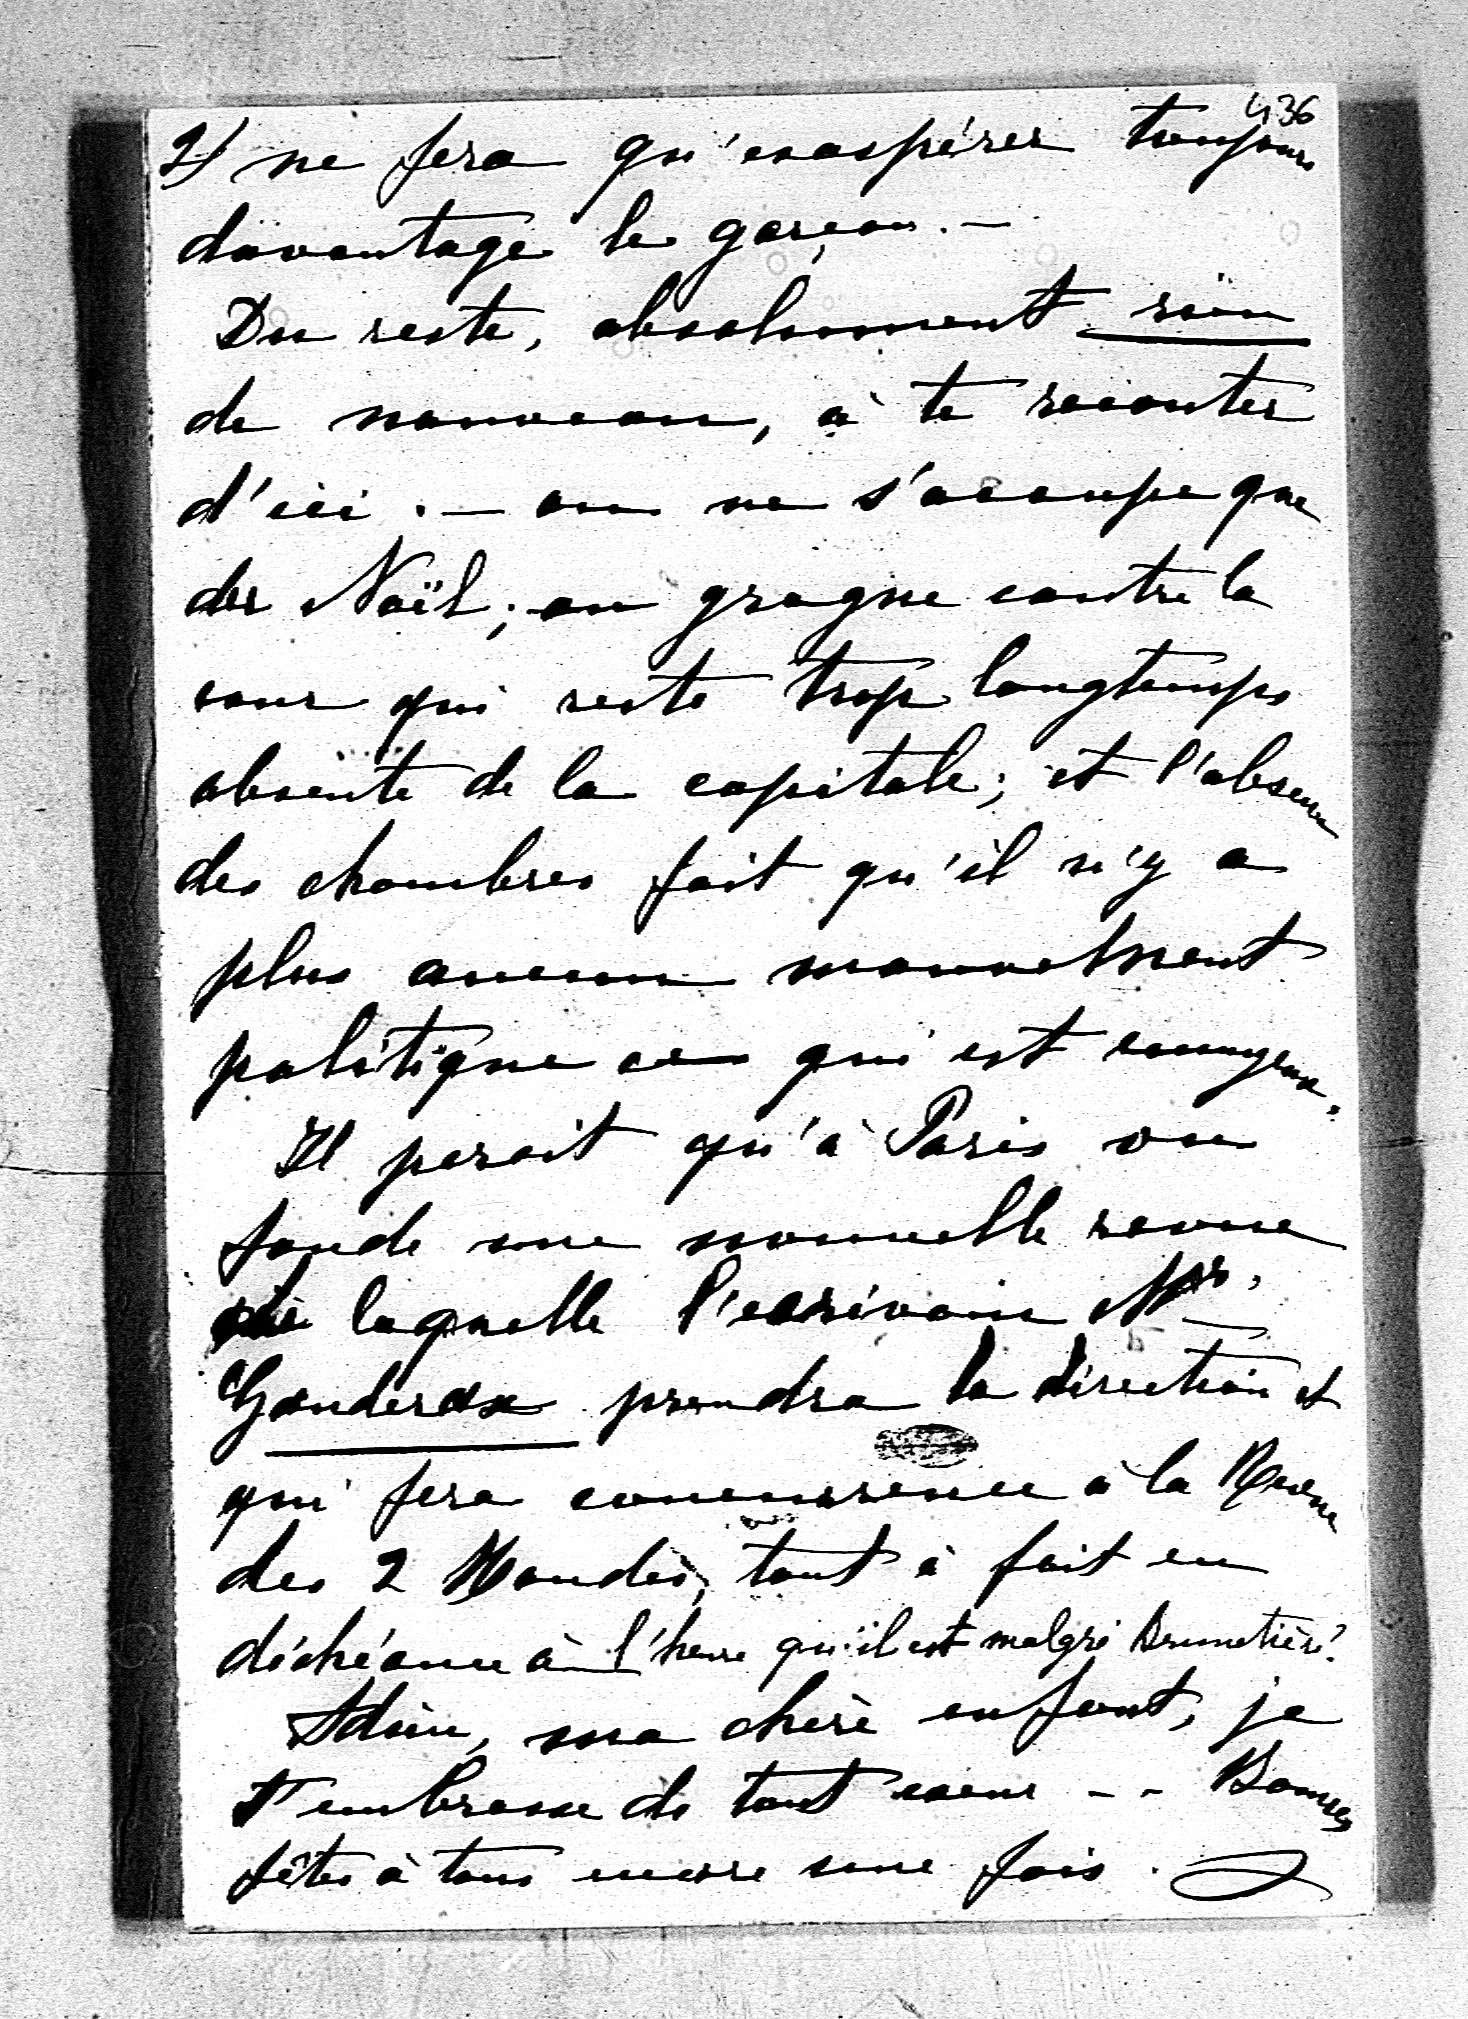 436
2) ne fera qu'exaspérer toujours
davantage le garçon. —
Du reste, absolument rien
de nouveau, à te raconter
d'ici. — on ne s'occupe que
des Noël; on grogne contre la
cour qui reste trop longtemps
absente de la capitale; et l'absence
des chambres fait qu'il n'y a
plus aucun mouvement
politique ce qui est ennuyeux.
Il parait qu'à Paris on
fonde une nouvelle revue
laquelle l'écrivain Mr.
Ganderax prendra la direction et
qui fera concurrence à la Revue
des 2 Mondes, tout à fait en
déchéance à l'heure qu'il est malgré Brunetière?
Adieu, ma chère enfant, je
t'embrasse de tout coeur - - Bonnes
fêtes à tous encore une fois.